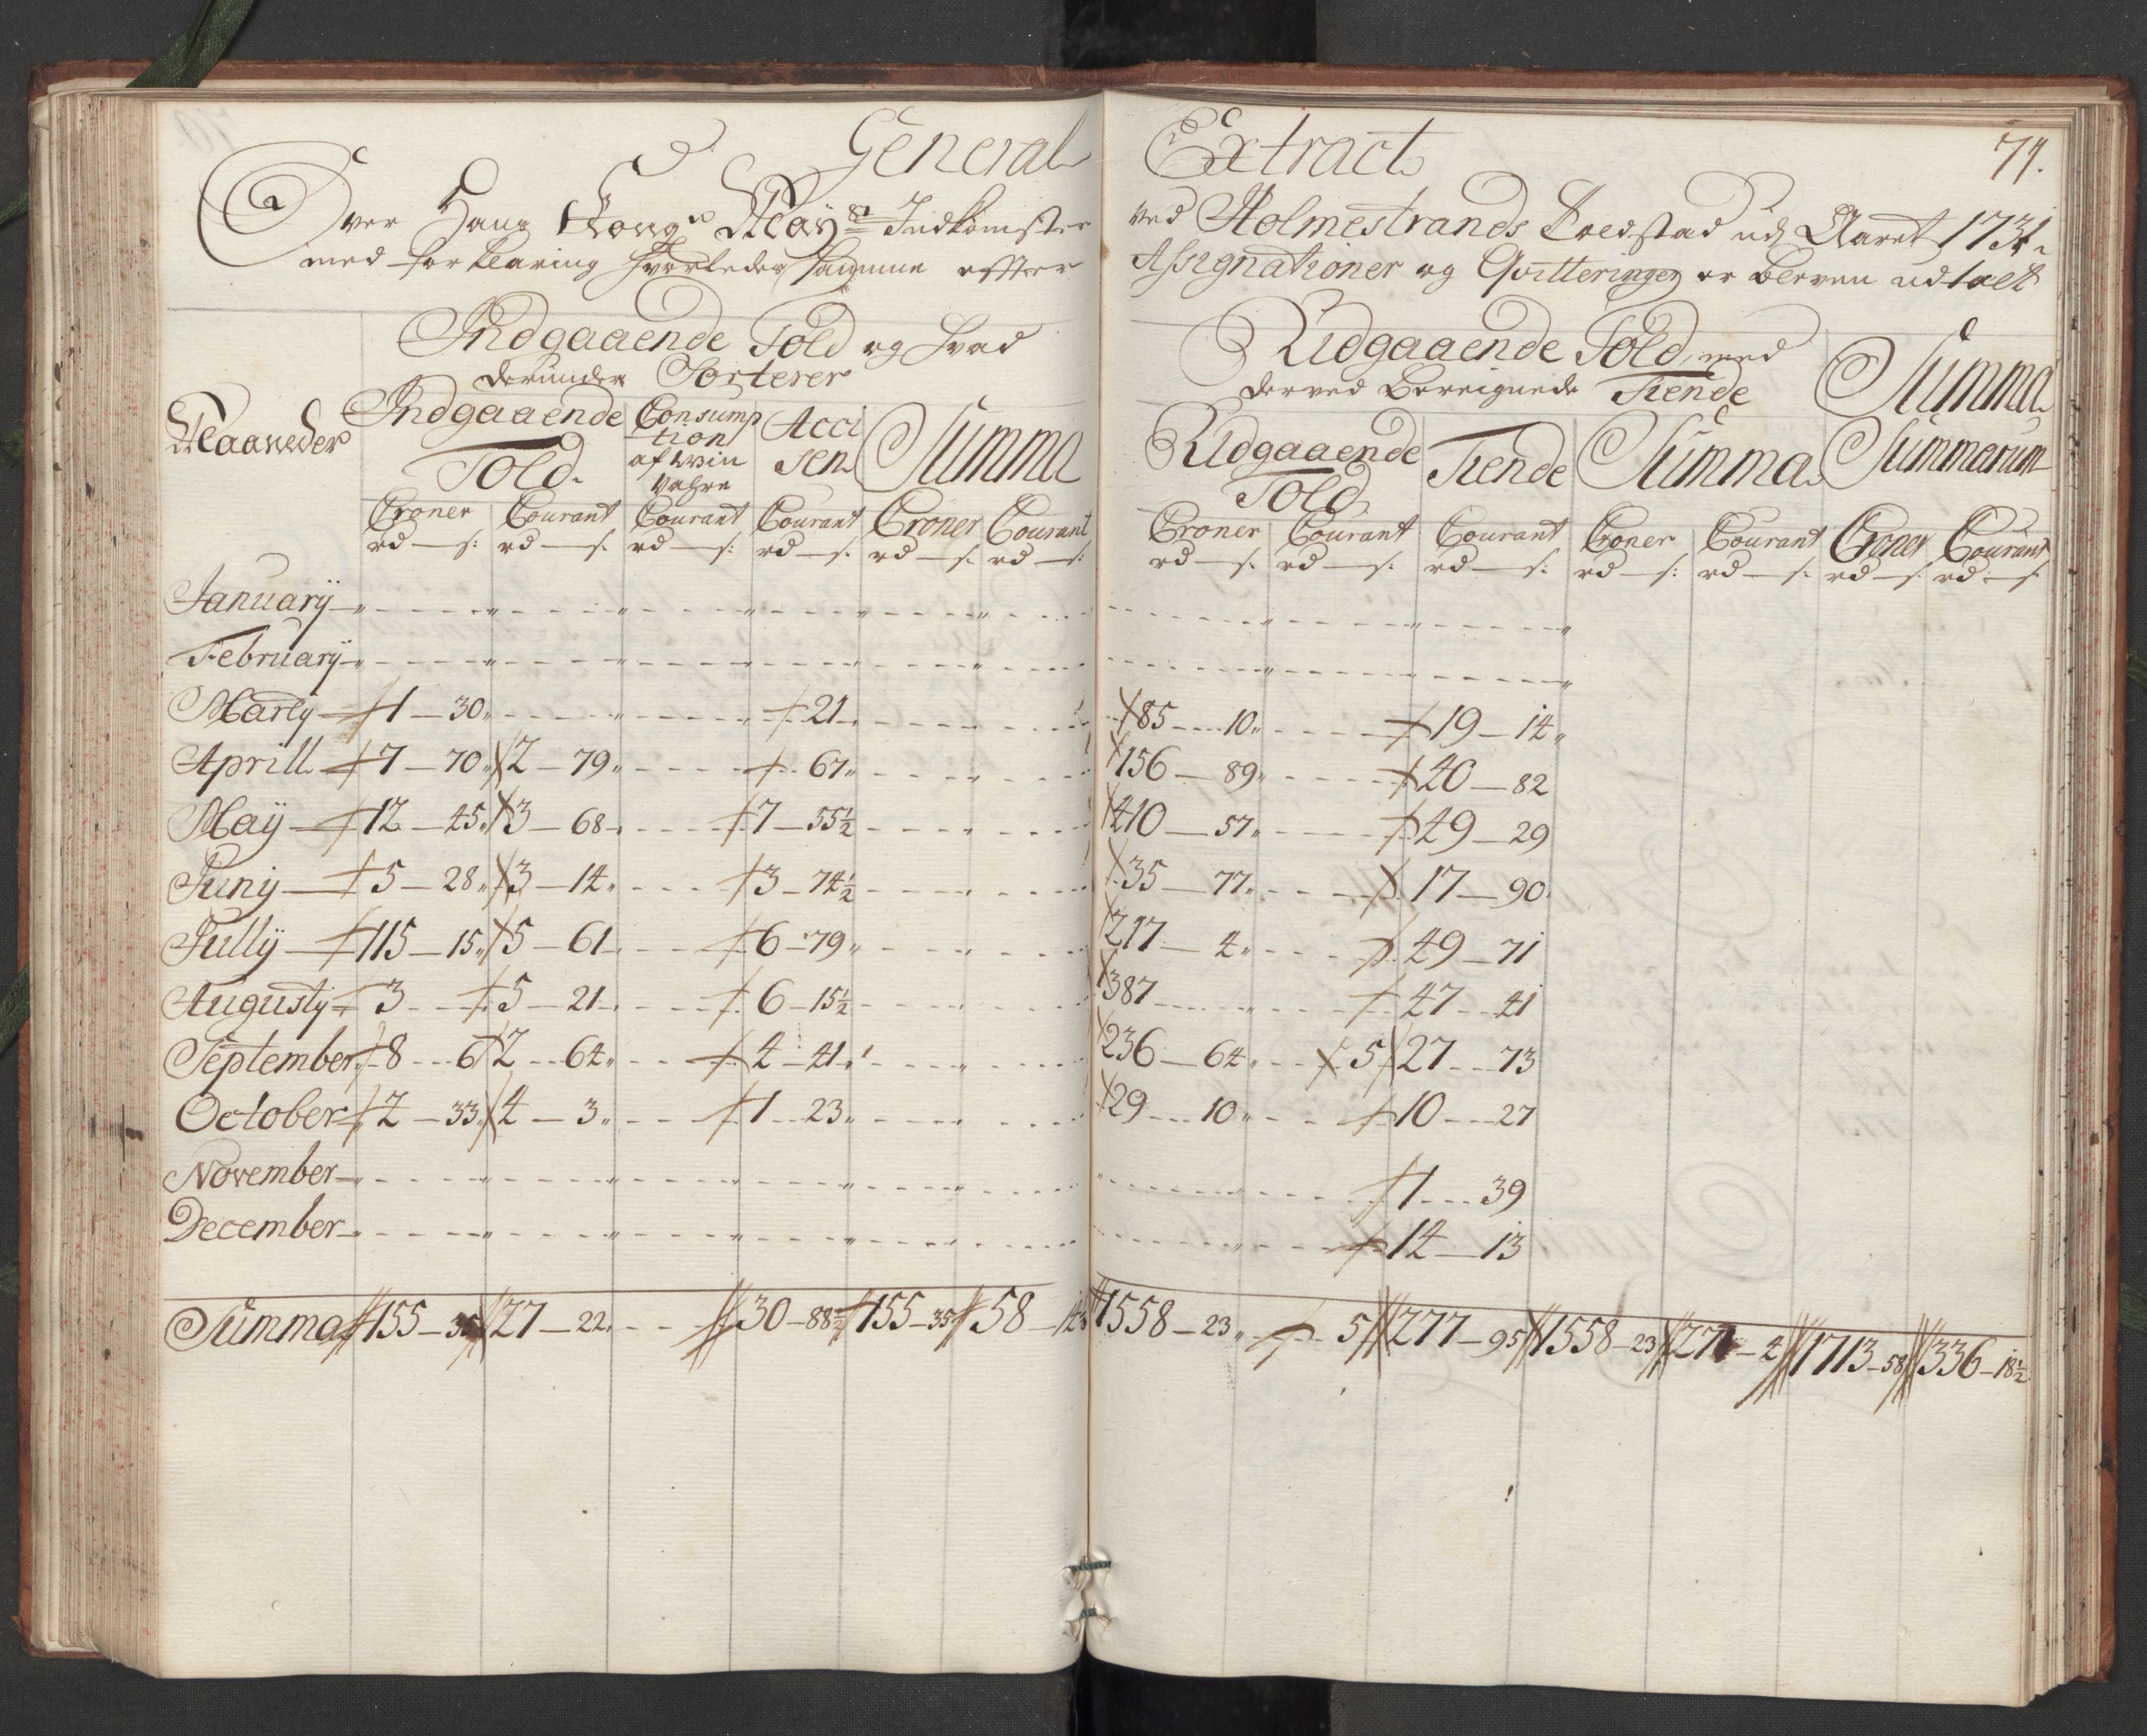 General Extract
71.
Over Hans Kong: May:ts Indkomster ved Holmestrands Toldstad udj Aaret 1731
med forklaring hvorledes samme efter Assignationer og Qvitteringer er bleven udtalt
Indgaaende Told og hvad
derunder Sorterer
Udgaaende Told, med
derved Bereignede Tiende
Summa
Summarum
Maaneder
Indgaaende
Told.
Consump
tion
af Win
Vahre
Acci
sen
Summa
Udgaaende
Told
Tiende
Summa
Croner Courant Courant Courant Croner Courant Croner Courant Courant Croner Courant Croner Courant
rd — s: rd — s. rd — s: rd — s. rd — s. rd — s: rd — s. rd — s: rd — s: rd — s: rd — s: rd — s: rd — s.
January
February
Martij 1 — 30 21 85 — 10 19 — 14
Aprill 7 — 70 2 — 79 67 156 — 89 40 — 82
Maij 12 — 45 3 — 68 7 — 55½ 410 — 57 49 — 29
Junij 5 — 28 3 — 14 3 — 74½ 35 — 77 17 — 90
Jullij 115 — 15 5 — 61 6 — 79 217 — 4 49 — 71
Augustij 3 5 — 21 6 — 15½ 387 47 — 41
September 8 — 6 2 — 64 4 — 41 236 — 64 5 27 — 73
October 2 — 33 4 — 3 1 — 23 29 — 10 10 — 27
November 1 — 39
December 14 — 13
Summa 155 — 35 27 — 22 30 — 88½ 155 — 35 58 — 14½ 1558 — 23 5 277 — 95 1558 — 23 278 — 4 1713 — 58 336 — 18½